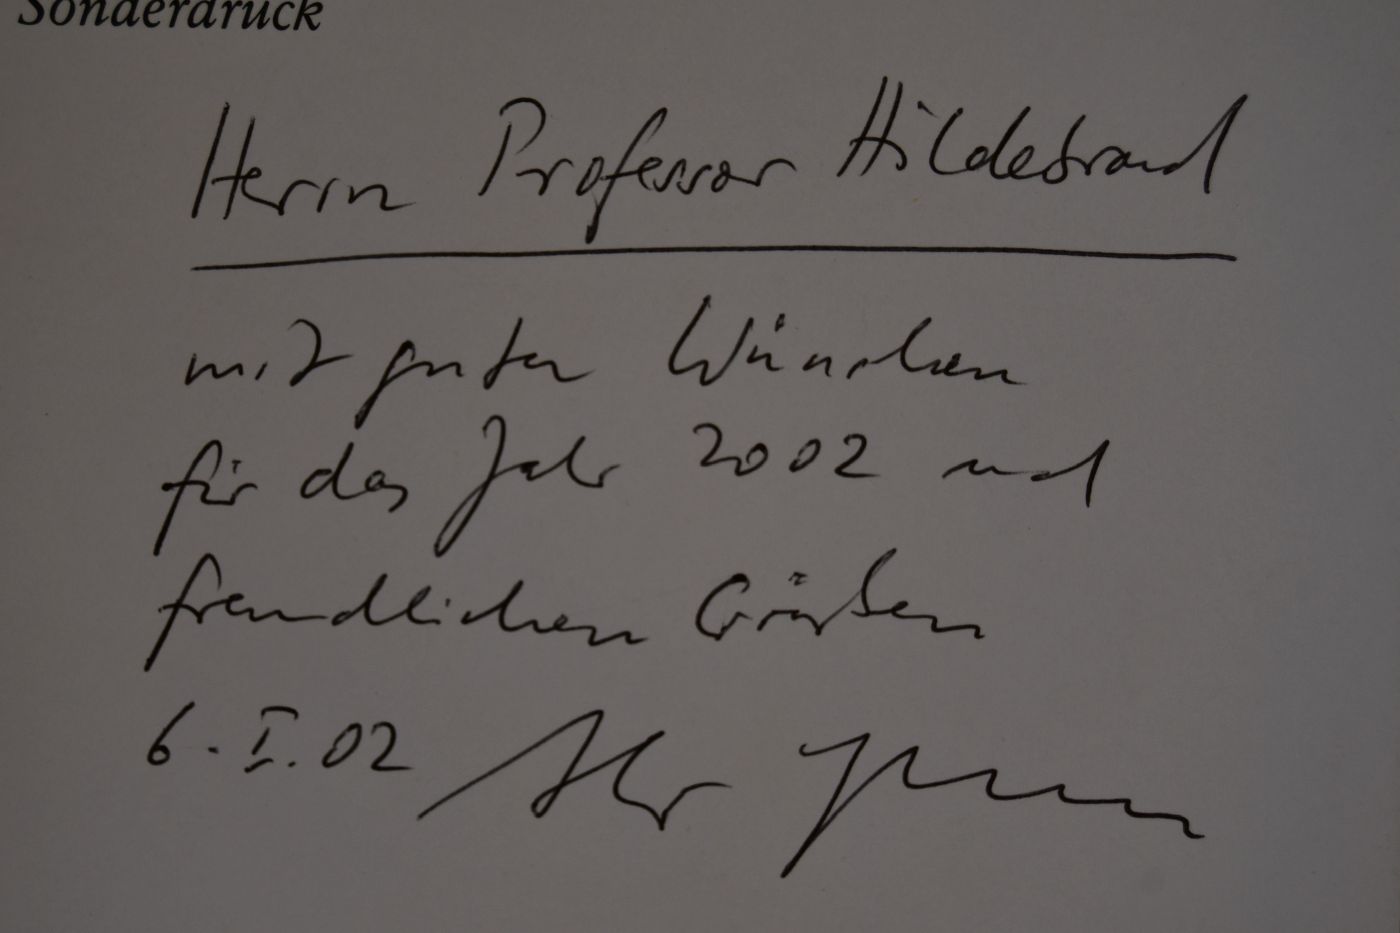 Sonderdruck
Herrn Professor Hildebrand
mit guten Wünschen
für das Jahr 2002 und
freundlichen Grüßen
6.I.02 Ihr